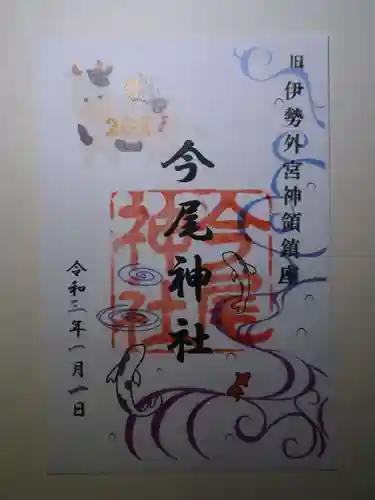 旧伊勢外宮神領鎮座
今尾神社
今尾神社
令和三年一月一日
2021